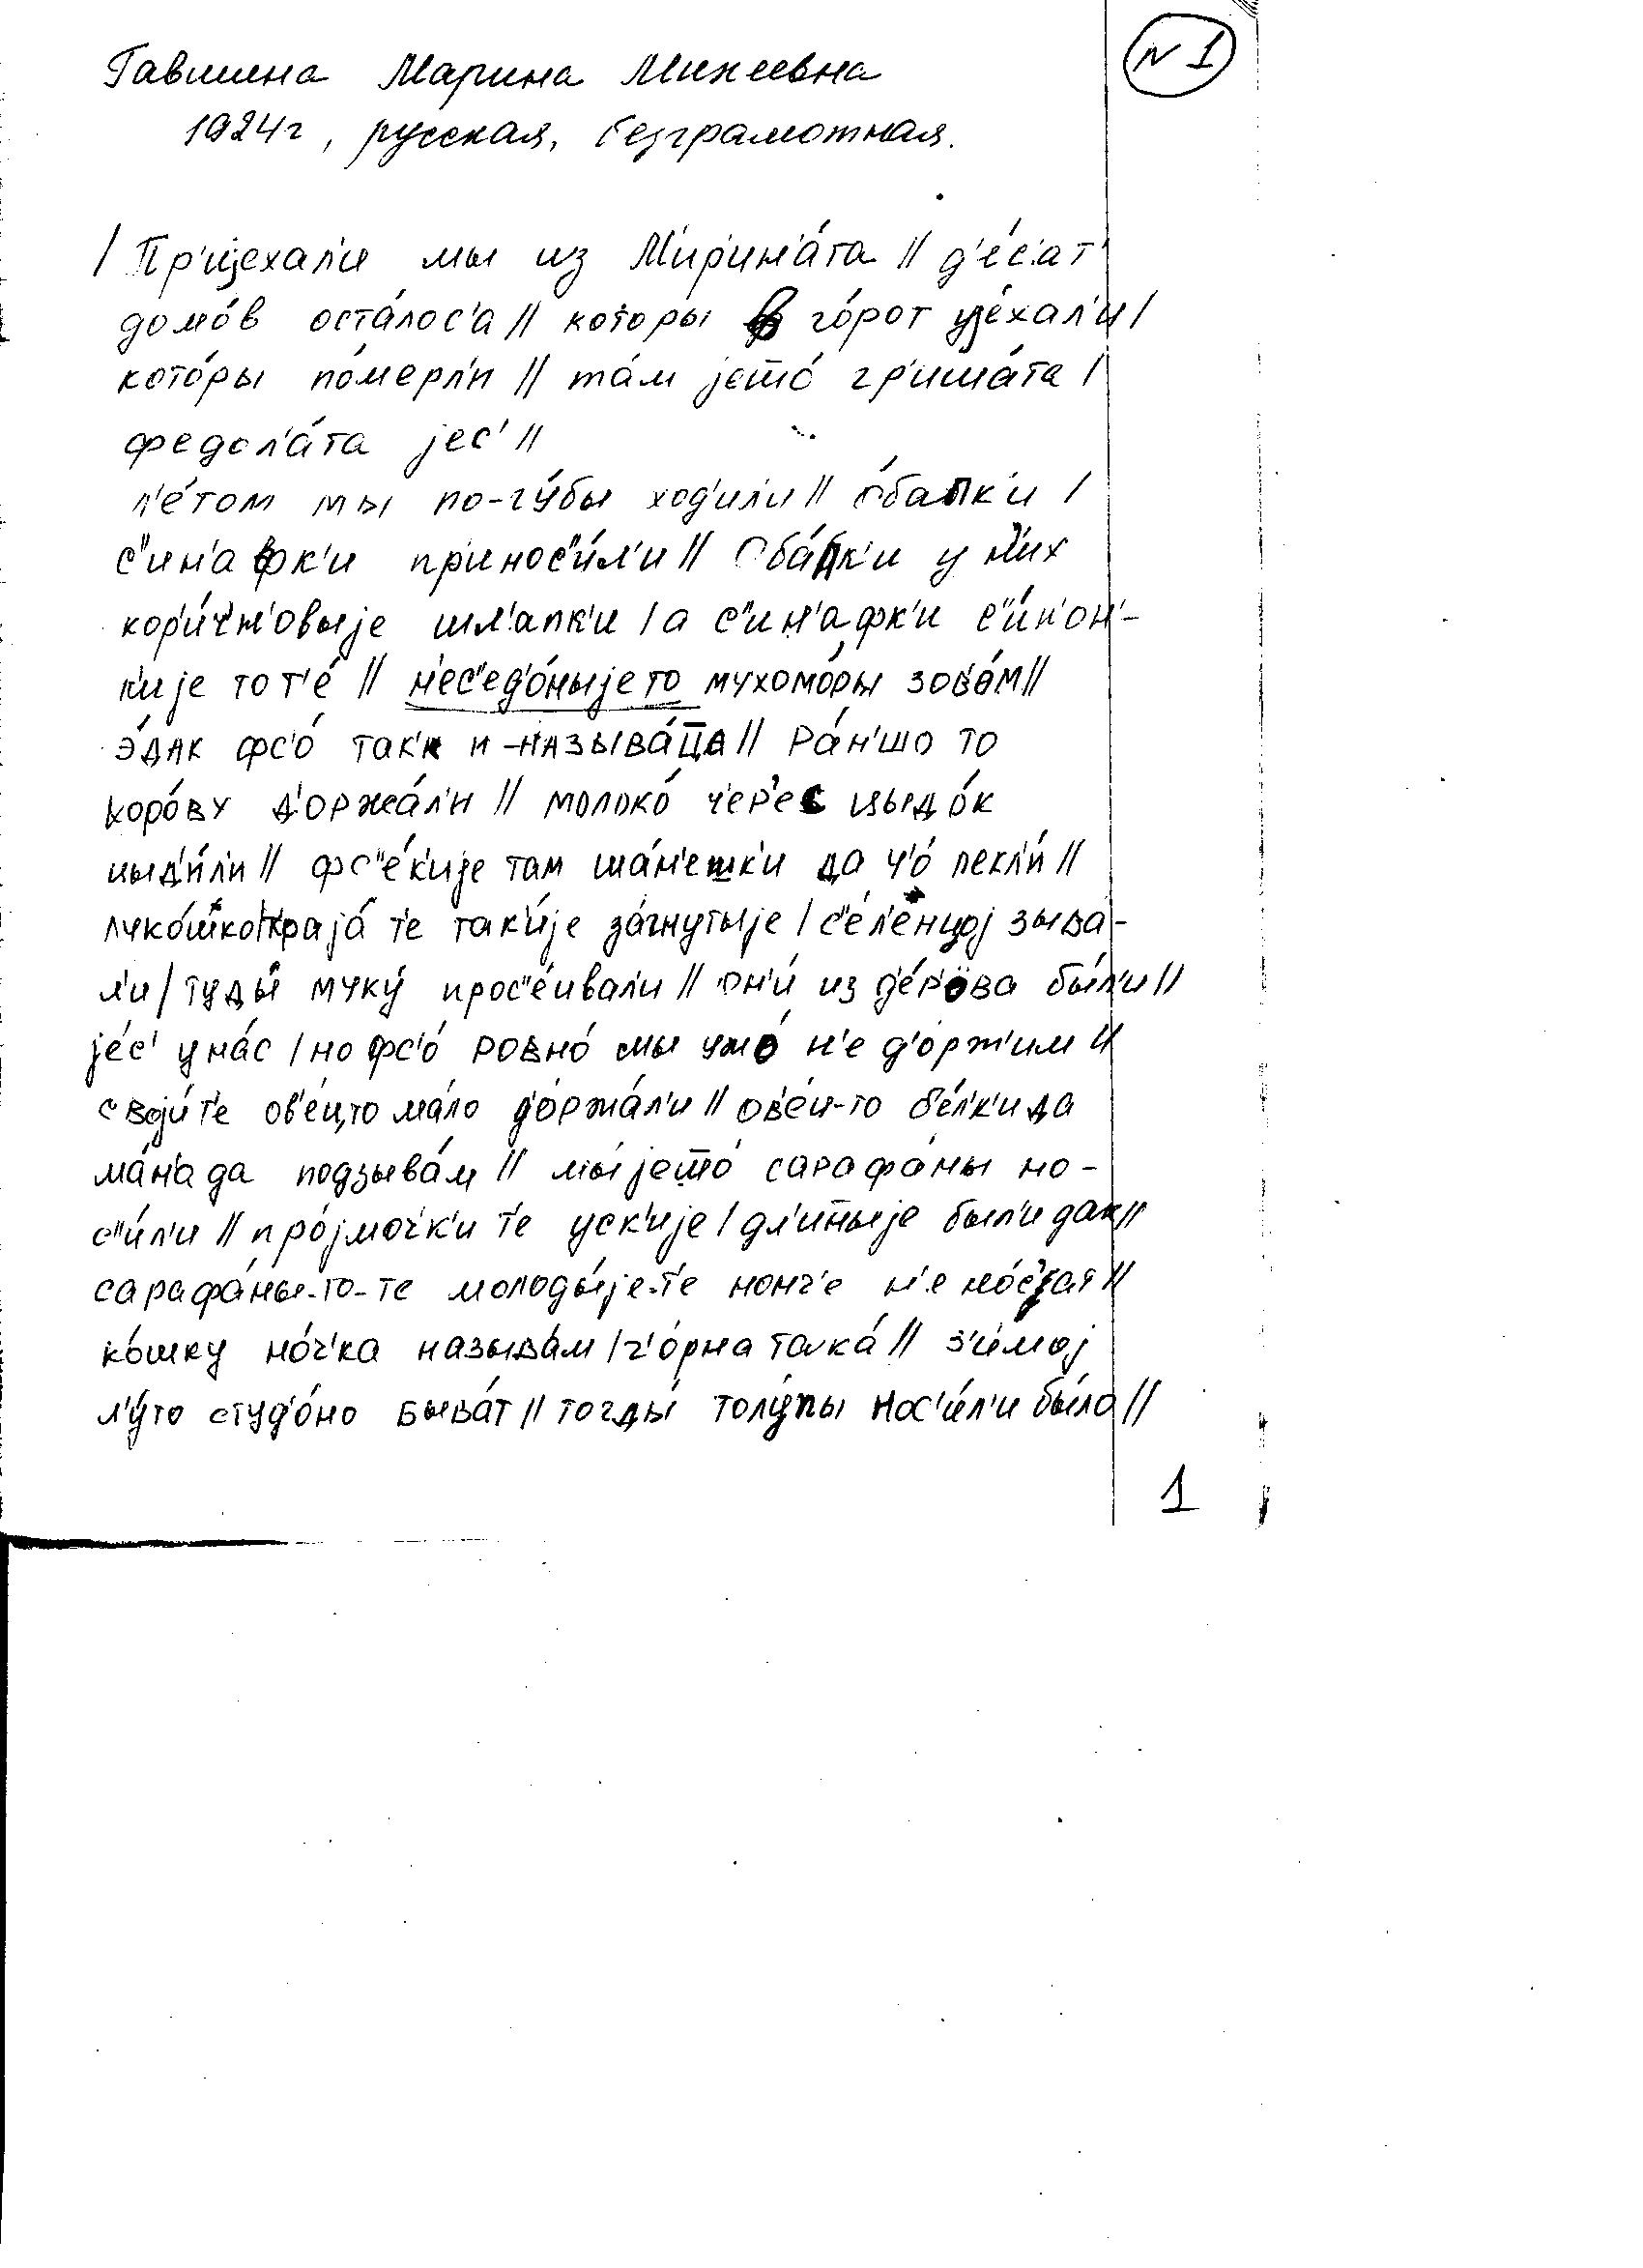 N 1
Гавшина Марина Михеевна
1924г, русская, безграмотная.
/ Пр'ијехал'и мы из М'ир'ин'а́та // д'е́с'ат'
домо́в оста́лос'а // которы в го́рот ујéхал'и /
кото́ры по́мерл'и // та́м јешо́ гр'иша́та /
федол'а́та јес' //
л'е́том мы по-гу́бы ход'ил'и // о́бапк'и /
с"ин'афк'и пр'инос"и́л'и // Оба́пк'и у н'их
кор'и́чн'овыје шл'апк'и / а с"ин'афк'и с"и́н'он'-
к'ије то т'е́ // н'ес"ед'о́ныје то мухомо́ры зов'о́м //
э́дак фс'о́ так'и и -называ́ца // ра́н'шо то
коро́ву д'оржа́л'и // молоко́ ч'ер'ес цыдо́к
цыд'и́л'и // фс"е́к'ије там ша́н'ешк'и да ч'о́ пекл'и́ //
луко́шко / краја́ т'е так'и́је за́гнутыје / с'е́л'е́нцој зыва-
л'и / туды́ муку́ прос"е́ивал'и // он'и́ из д'е́р'ова бы́л'и //
је́с' у на́с / но фс'о́ ровно́ мы ужо́ н'е д'о́рж'им //
своји́ т'е ов'е́ц то ма́ло д'оржа́л'и // ов'е́ц-то б'е́лк'и да
ма́н'а да подзыва́м // мы́ јешо́ сарафа́ны но-
с"и́л'и // про́јмочк'и т'е уск'ије / дл'иныје был'и дак //
сарафа́ны-то-те молоды́је-т'е нонч'е н'е но́с'ат //
ко́шку но́ч'ка называ́м / ч'о́рна така́ // з'имој
л'у́то студ'о́но быва́т // тогды́ толу́пы нос'и́л'и бы́ло //
1